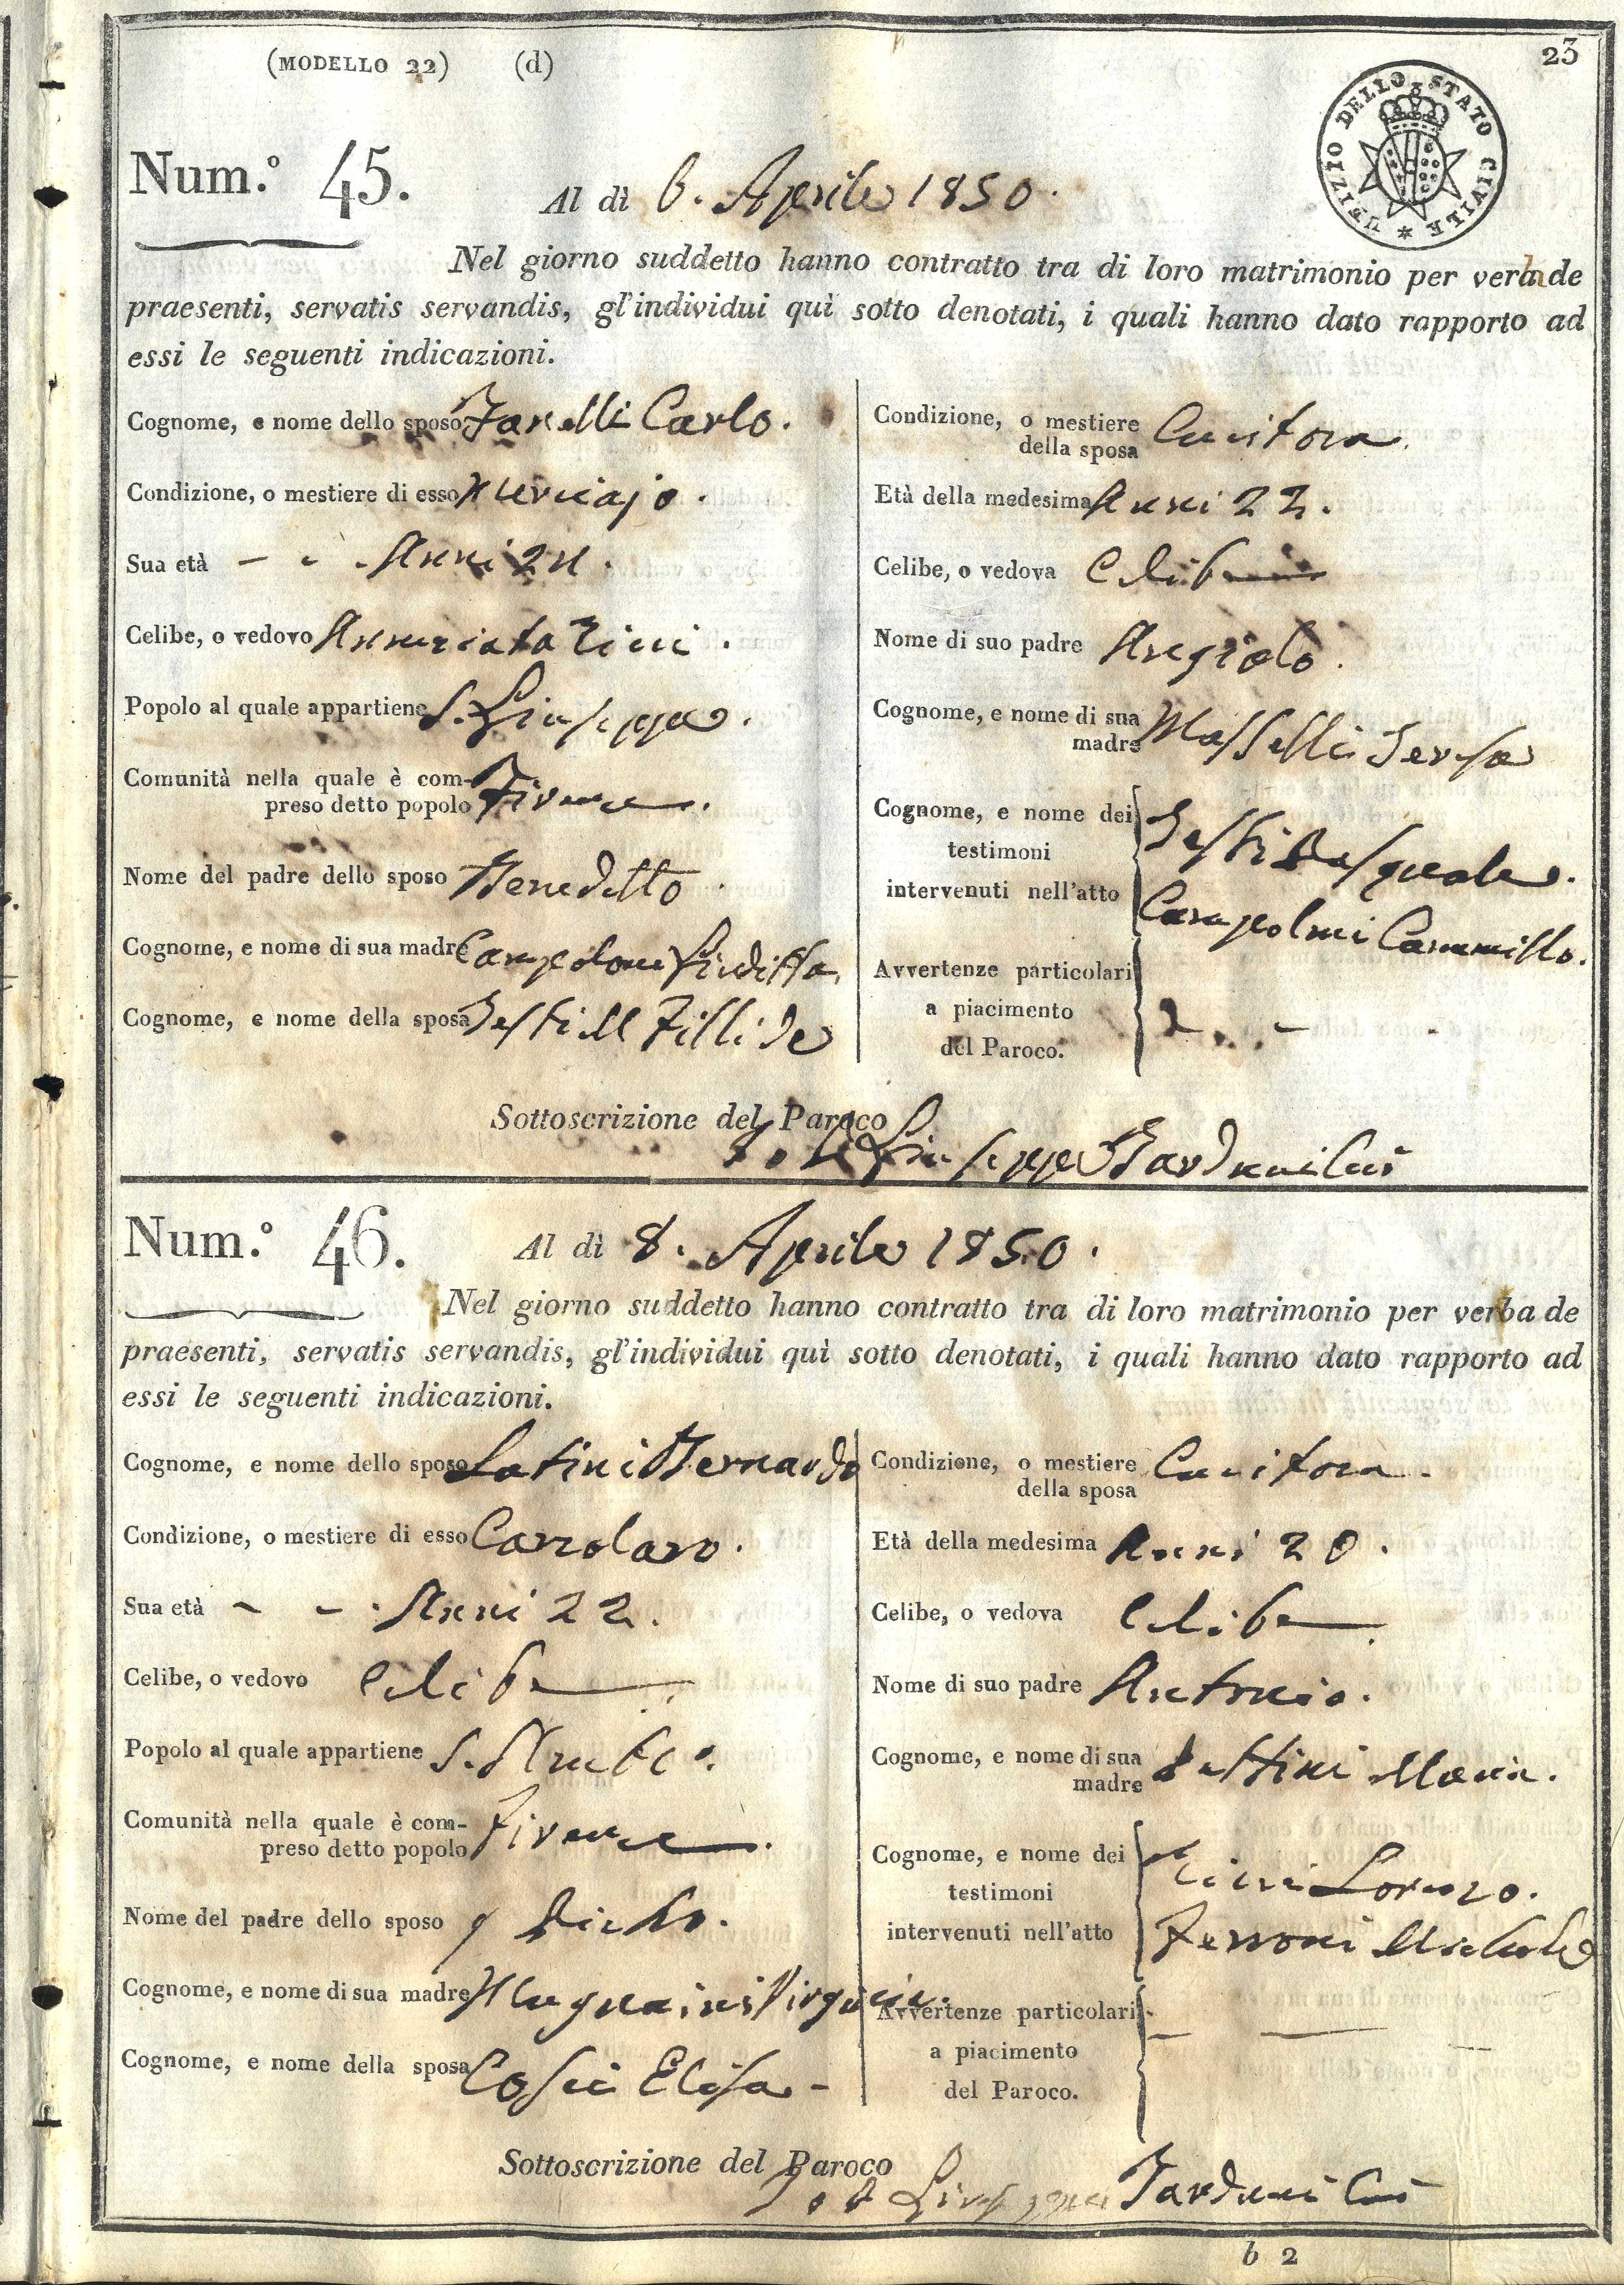 (MODELLO 22) (d)
23
UFIZIO DELLO STATO CIVILE *
Num.° 45.
Al dì 6. Aprile 1850.
Nel giorno suddetto hanno contratto tra di loro matrimonio per verba de
praesenti, servatis servandis, gl'individui quì sotto denotati, i quali hanno dato rapporto ad
essi le seguenti indicazioni.
Cognome, e nome dello sposo Carlo.
Condizione, o mestiere di esso
Sua età - - . Anni
Celibe, o vedovo
Popolo al quale appartiene S. Giuseppe.
Comunità nella quale è com-
preso detto popolo Firenze.
Nome del padre dello sposo Benedetto.
Cognome, e nome di sua madre
Cognome, e nome della sposa Fillide
Condizione, o mestiere
della sposa Cucitora.
Età della medesima Anni 22.
Celibe, o vedova Celibe
Nome di suo padre Angiolo.
Cognome, e nome di sua
madre Masselli Teresa
Cognome, e nome dei
testimoni
intervenuti nell'atto
Testi Pasquale.
Campolmi Cammillo.
Avvertenze particolari
a piacimento
del Paroco.
Sottoscrizione del Paroco
Giuseppe Targuni
Num.° 46.
Al dì 8. Aprile 1850.
Nel giorno suddetto hanno contratto tra di loro matrimonio per verba de
praesenti, servatis servandis, gl'individui quì sotto denotati, i quali hanno dato rapporto ad
essi le seguenti indicazioni.
Cognome, e nome dello sposo Latini Bernardo
Condizione, o mestiere di esso Calzolaro.
Sua età - - . Anni 22.
Celibe, o vedovo Celibe
Popolo al quale appartiene
Comunità nella quale è com-
preso detto popolo Firenze.
Nome del padre dello sposo
Cognome, e nome di sua madre Mugnaini Virginia.
Cognome, e nome della sposa Cosci Elisa -
Condizione, o mestiere
della sposa Cucitora.
Età della medesima Anni 20.
Celibe, o vedova Celibe
Nome di suo padre Antonio.
Cognome, e nome di sua
madre Maria.
Cognome, e nome dei
testimoni
intervenuti nell'atto
Lorenzo.
Ferroni
Avvertenze particolari
a piacimento
del Paroco.
Sottoscrizione del Paroco
Giuseppe
b 2